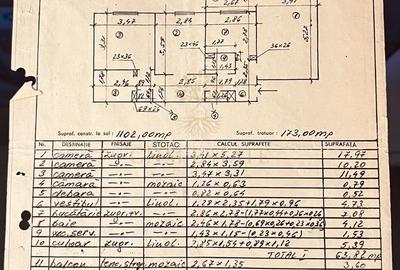 3,47 2,84 2,86 3,41
3,31 3,59 2,78 5,27
23×46 23×46 36×26
1,43 1,79 1,28
2,85
Supraf. constr. la sol : 1102,00mp Supraf. trotuar : 173,00mp
Nr. DESTINAȚIE FINISAJE STOTAC: CALCUL SUPRAFETE SUPRAFAȚA
1 cameră zugr. linol. 3,41×5,27 17,97
2 cameră -"- -"- 2,84×3,59 10,20
3 cameră -"- -"- 3,47×3,31 11,49
4 cămara -"- mozaic 1,26×0,63 0,79
5 debara -"- -"- 0,82×0,64 0,52
6 vestibul -"- linol. 1,28×2,35+1,79×0,96 4,73
7 bucătărie zugr.+v. -"- 2,86×2,78-(1,77×0,44+0,36×0,26 7,08
8 baie -"- mozaic 2,46×1,78-(0,69×0,26+0,23×0,46) 4,12
9 -"- -"- 1,43×1,15-(0,23×0,46) 1,53
10 culoar zugr. linol. 2,85×1,54+0,79×1,12 5,39
TOTAL I 63,82 mp
11 balcon mozaic 2,67×1,35 3,60